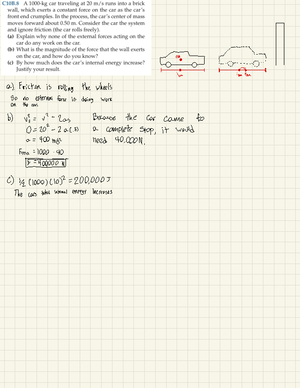 C10B.8 A 1000-kg car traveling at 20 m/s runs into a brick
wall, which exerts a constant force on the car as the car's
front end crumples. In the process, the car's center of mass
moves forward about 0.50 m. Consider the car the system
and ignore friction (the car rolls freely).
(a) Explain why none of the external forces acting on the
car do any work on the car.
(b) What is the magnitude of the force that the wall exerts
on the car, and how do you know?
(c) By how much does the car's internal energy increase?
Justify your result.
a) Friction is rolling the wheels
so no external force is doing work
on the car.
b) = v² - 2as
0 = 20² - 2 a (.5)
a = 400 m/s
= 1000 · 
Because the car came to
a complete stop, it would
need 40,000N.
c) ½ (1000) (20)² = 200,000 J
The cars total internal energy increases